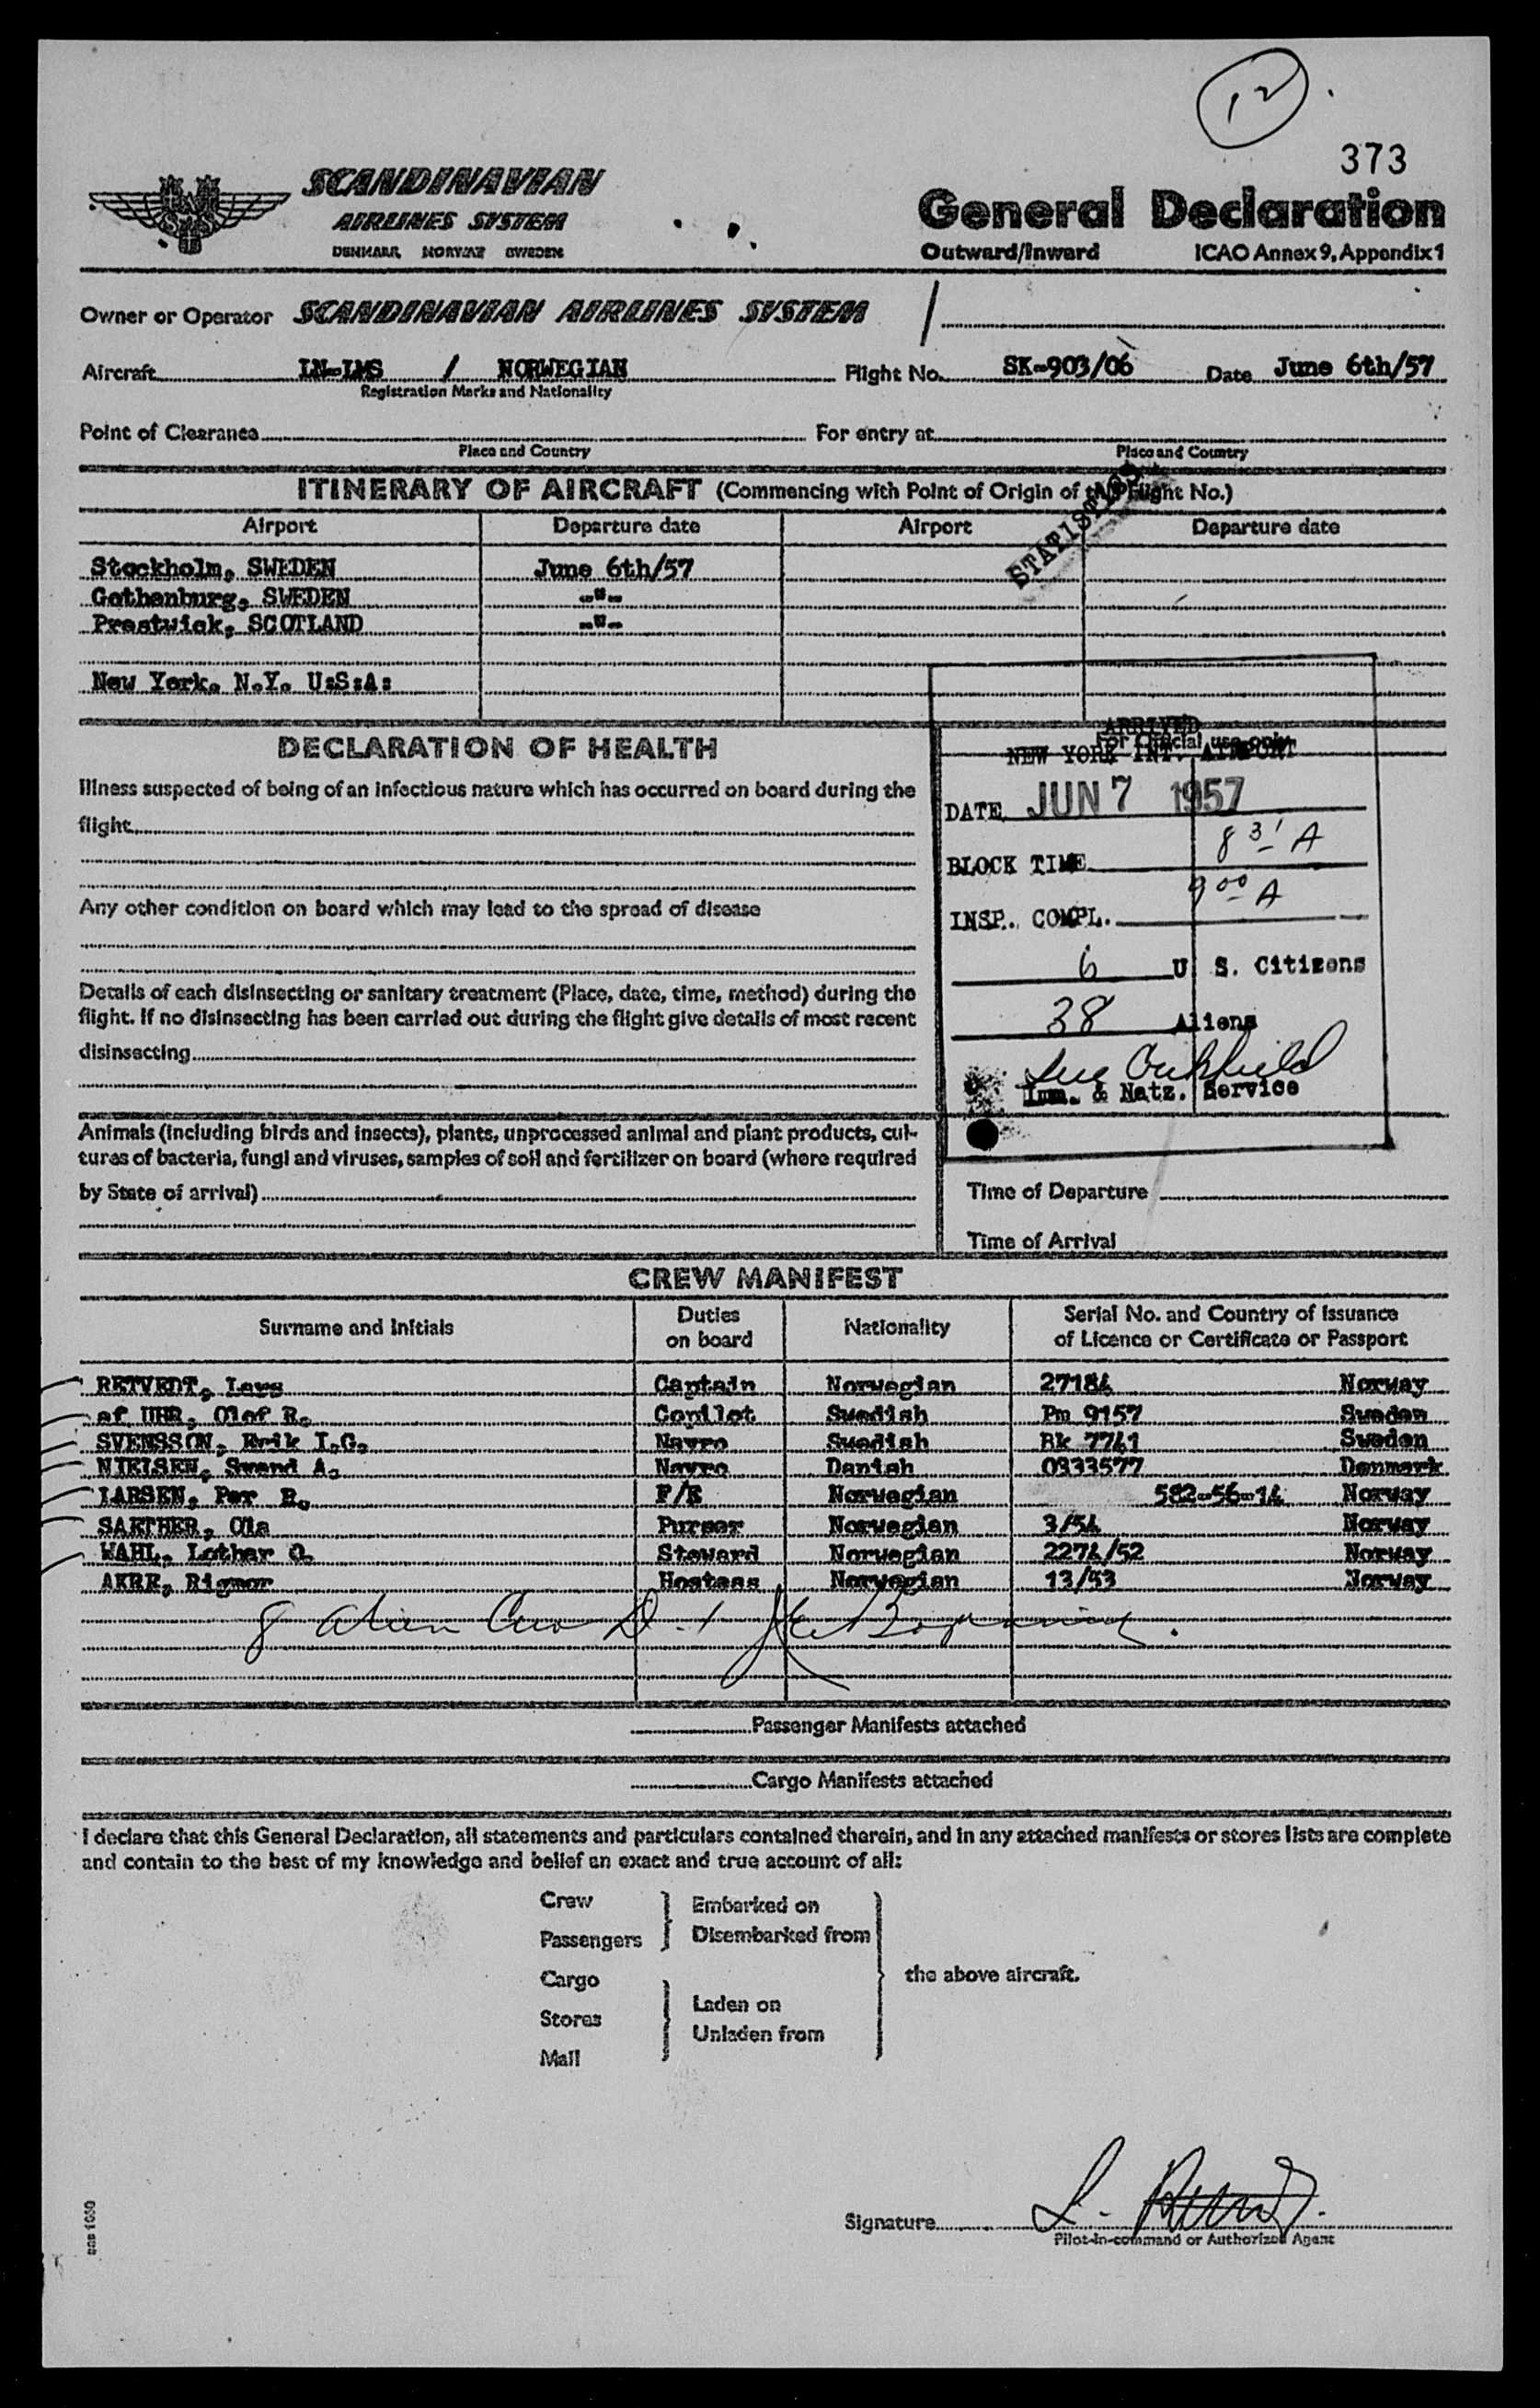 12
373
SCANDINAVIAN
AIRLINES SYSTEM
DENMARK NORWAY SWEDEN
General Declaration
Outward/Inward ICAO Annex 9, Appendix 1
Owner or Operator SCANDINAVIAN AIRLINES SYSTEM /
Aircraft LN-LMS / NORWEGIAN Flight No. SK-903/06 Date June 6th/57
Registration Marks and Nationality
Point of Clearance For entry at
Place and Country Place and Country
ITINERARY OF AIRCRAFT (Commencing with Point of Origin of Flight No.)
STATISTICS
Airport Departure date Airport Departure date
Stockholm, SWEDEN June 6th/57
Gothenburg, SWEDEN -"-
Prestwick, SCOTLAND -"-
New York. N.Y. U:S:A:
DECLARATION OF HEALTH
Illness suspected of being of an infectious nature which has occurred on board during the
flight
Any other condition on board which may lead to the spread of disease
Details of each disinsecting or sanitary treatment (Place, date, time, method) during the
flight. If no disinsecting has been carried out during the flight give details of most recent
disinsecting
Animals (including birds and insects), plants, unprocessed animal and plant products, cul-
tures of bacteria, fungi and viruses, samples of soil and fertilizer on board (where required
by State of arrival)
For official use only
ARRIVED
NEW YORK INT. AIRPORT
DATE JUN 7 1957
BLOCK TIME 8 31 A
INSP. COMPL. 9 00 A
6 U S. Citizens
38 Aliens
Imm. & Natz. Service
Time of Departure
Time of Arrival
CREW MANIFEST
Surname and Initials Duties on board Nationality Serial No. and Country of Issuance of Licence or Certificate or Passport
RETVEDT, Lars Captain Norwegian 27184 Norway
af UHR, Olof R. Copilot Swedish Pm 9157 Sweden
SVENSSON, Erik I.G. Navro Swedish Bk 7741 Sweden
NIELSEN, Svend A. Navro Danish 0333577 Denmark
LARSEN, Per B. F/E Norwegian 582-56-14 Norway
SAETHER, Ola Purser Norwegian 3/54 Norway
WAHL, Lothar O. Steward Norwegian 2274/52 Norway
AKRE, Rigmor Hostess Norwegian 13/53 Norway
8 Alien Crew D-1
Passenger Manifests attached
Cargo Manifests attached
I declare that this General Declaration, all statements and particulars contained therein, and in any attached manifests or stores lists are complete
and contain to the best of my knowledge and belief an exact and true account of all:
Crew
Passengers
Embarked on
Disembarked from
Cargo
Stores
Mail
Laden on
Unladen from
the above aircraft.
Signature
Pilot-in-command or Authorized Agent
sas 1030